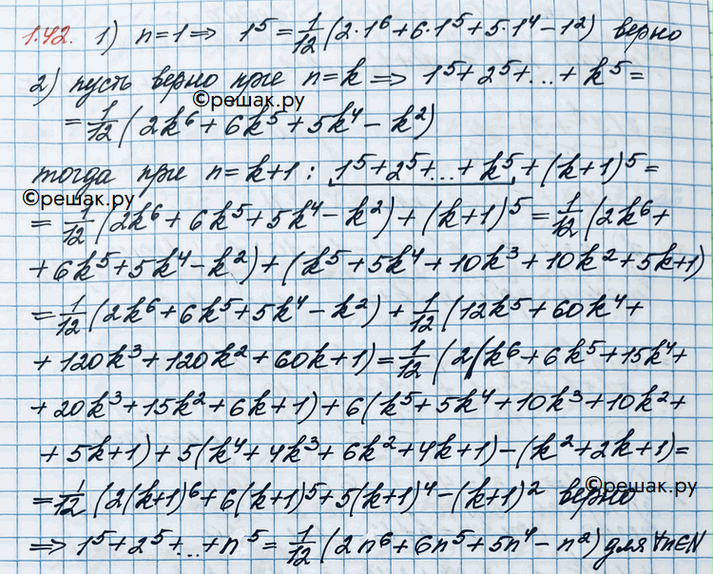 1.42. 1) n=1 ⇒ 1⁵ = 1/12 (2·1⁶+6·1⁵+5·1⁴−1²) верно
2) пусть верно при n=k ⇒ 1⁵+2⁵+...+k⁵=
©решак.ру
= 1/12 (2k⁶+6k⁵+5k⁴−k²)
тогда при n=k+1: 1⁵+2⁵+...+k⁵+(k+1)⁵=
©решак.ру
= 1/12 (2k⁶+6k⁵+5k⁴−k²)+(k+1)⁵= 1/12 (2k⁶+
+6k⁵+5k⁴−k²)+(k⁵+5k⁴+10k³+10k²+5k+1)
= 1/12 (2k⁶+6k⁵+5k⁴−k²)+ 1/12 (12k⁵+60k⁴+
+120k³+120k²+60k+1)= 1/12 (2(k⁶+6k⁵+15k⁴+
+20k³+15k²+6k+1)+6(k⁵+5k⁴+10k³+10k²+
+5k+1)+5(k⁴+4k³+6k²+4k+1)−(k²+2k+1)=
©решак.ру
= 1/12 (2(k+1)⁶+6(k+1)⁵+5(k+1)⁴−(k+1)² верно
⇒ 1⁵+2⁵+...+n⁵= 1/12 (2n⁶+6n⁵+5n⁴−n²) для ∀n∈N